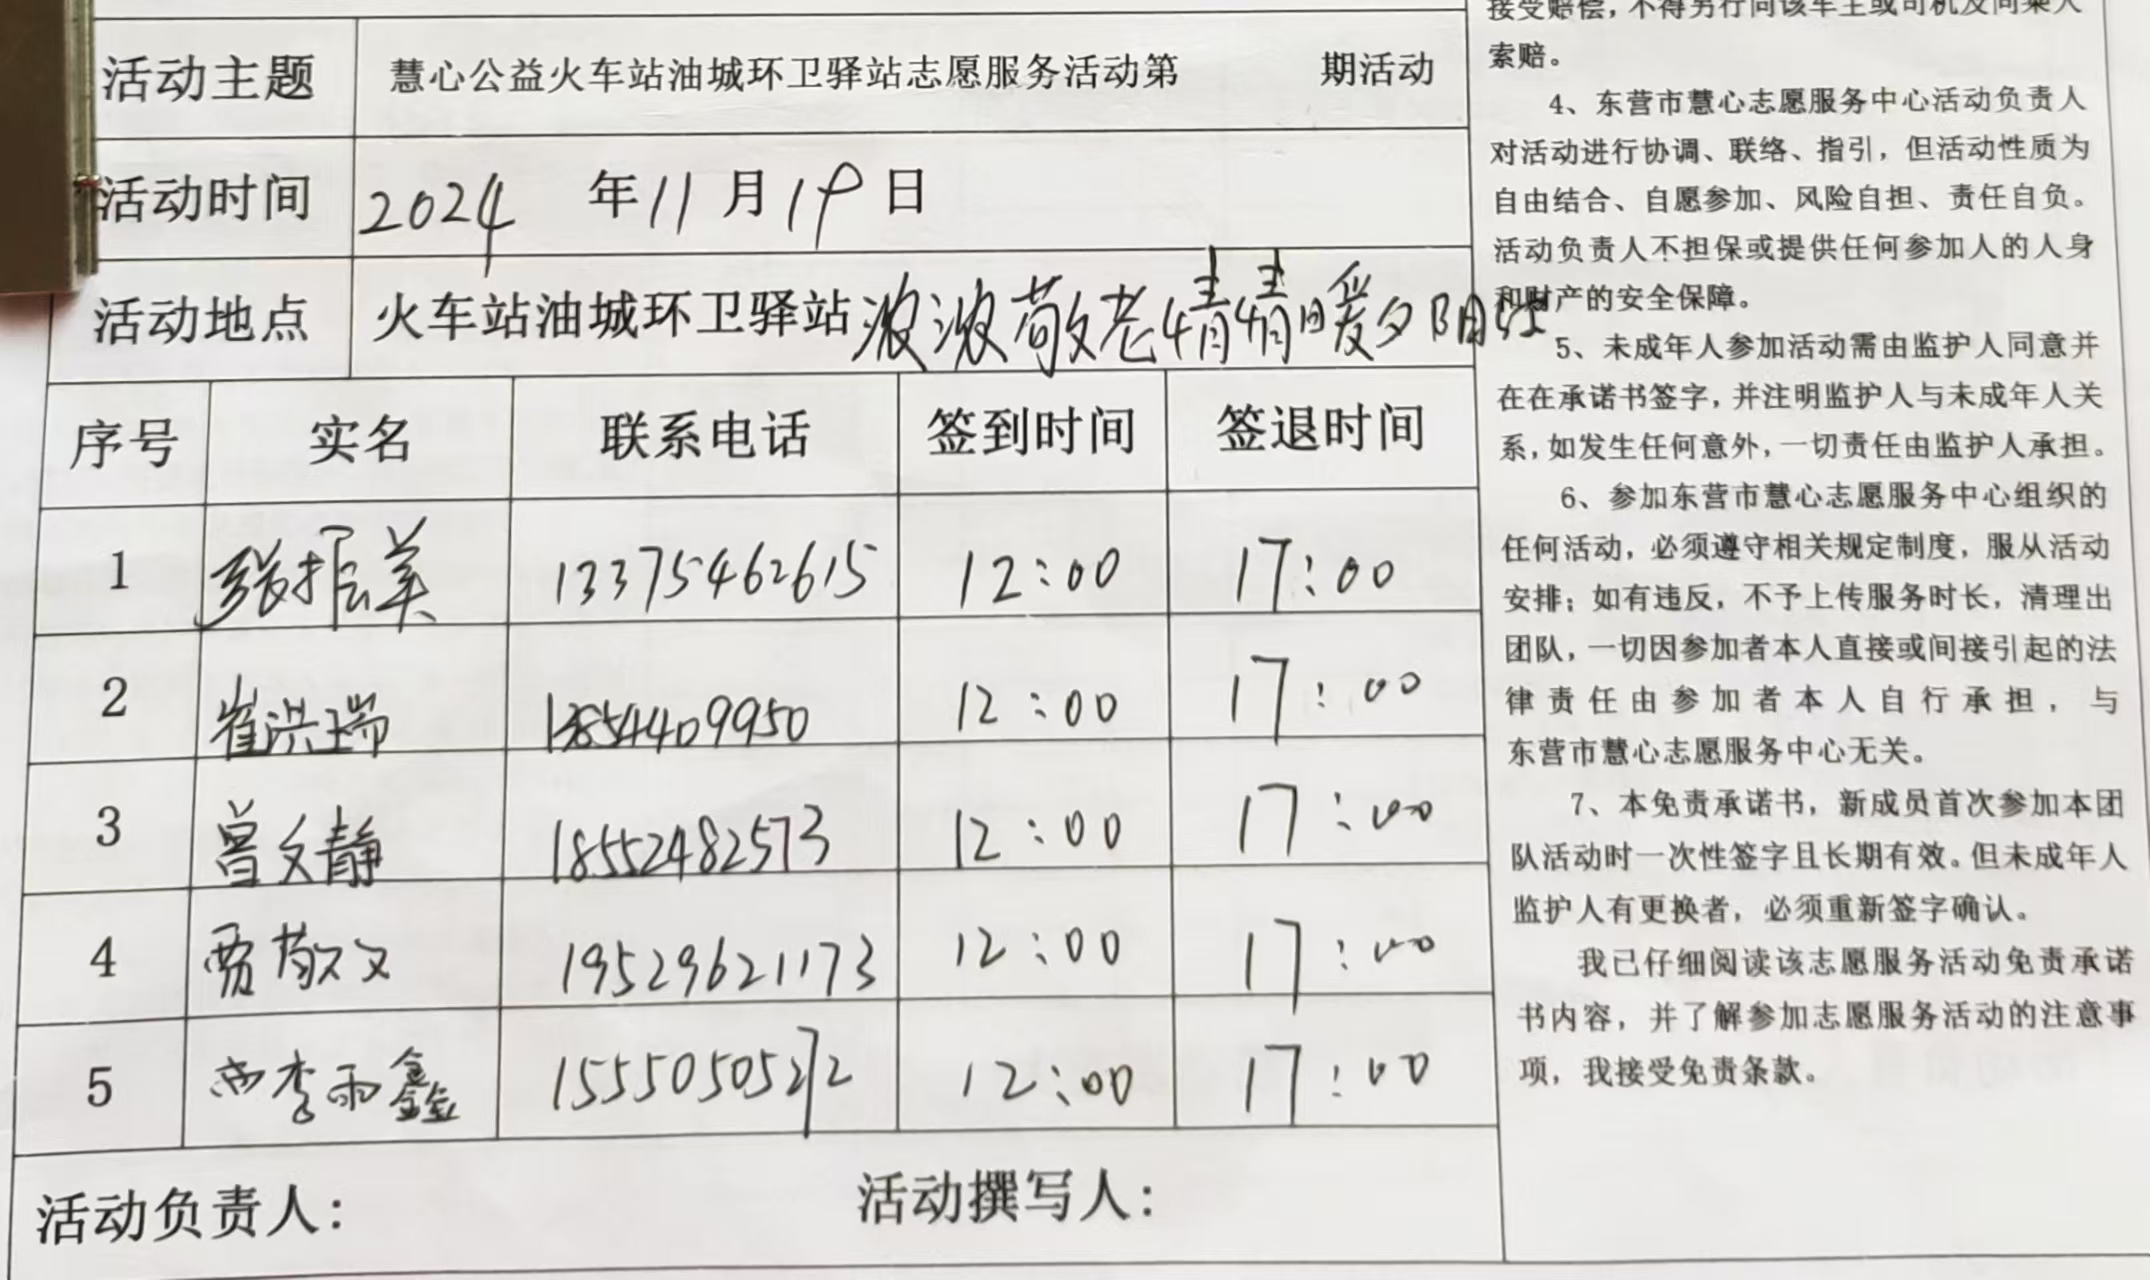 活动主题 慧心公益火车站油城环卫驿站志愿服务活动第 期活动
活动时间 2024 年 11 月 19 日
活动地点 火车站油城环卫驿站 浓浓敬老情情暖夕阳红
序号 实名 联系电话 签到时间 签退时间
1 张振美 13375462615 12:00 17:00
2 崔洪瑞 18554409950 12:00 17:00
3 曾文静 18552482573 12:00 17:00
4 贾敬文 19529621173 12:00 17:00
5 李雨鑫 15550505272 12:00 17:00
活动负责人: 活动撰写人:
接受赔偿，不得另行向该车主或司机及同乘人
索赔。
4、东营市慧心志愿服务中心活动负责人
对活动进行协调、联络、指引，但活动性质为
自由结合、自愿参加、风险自担、责任自负。
活动负责人不担保或提供任何参加人的人身
和财产的安全保障。
5、未成年人参加活动需由监护人同意并
在在承诺书签字，并注明监护人与未成年人关
系，如发生任何意外，一切责任由监护人承担。
6、参加东营市慧心志愿服务中心组织的
任何活动，必须遵守相关规定制度，服从活动
安排；如有违反，不予上传服务时长，清理出
团队，一切因参加者本人直接或间接引起的法
律责任由参加者本人自行承担，与
东营市慧心志愿服务中心无关。
7、本免责承诺书，新成员首次参加本团
队活动时一次性签字且长期有效。但未成年人
监护人有更换者，必须重新签字确认。
我已仔细阅读该志愿服务活动免责承诺
书内容，并了解参加志愿服务活动的注意事
项，我接受免责条款。